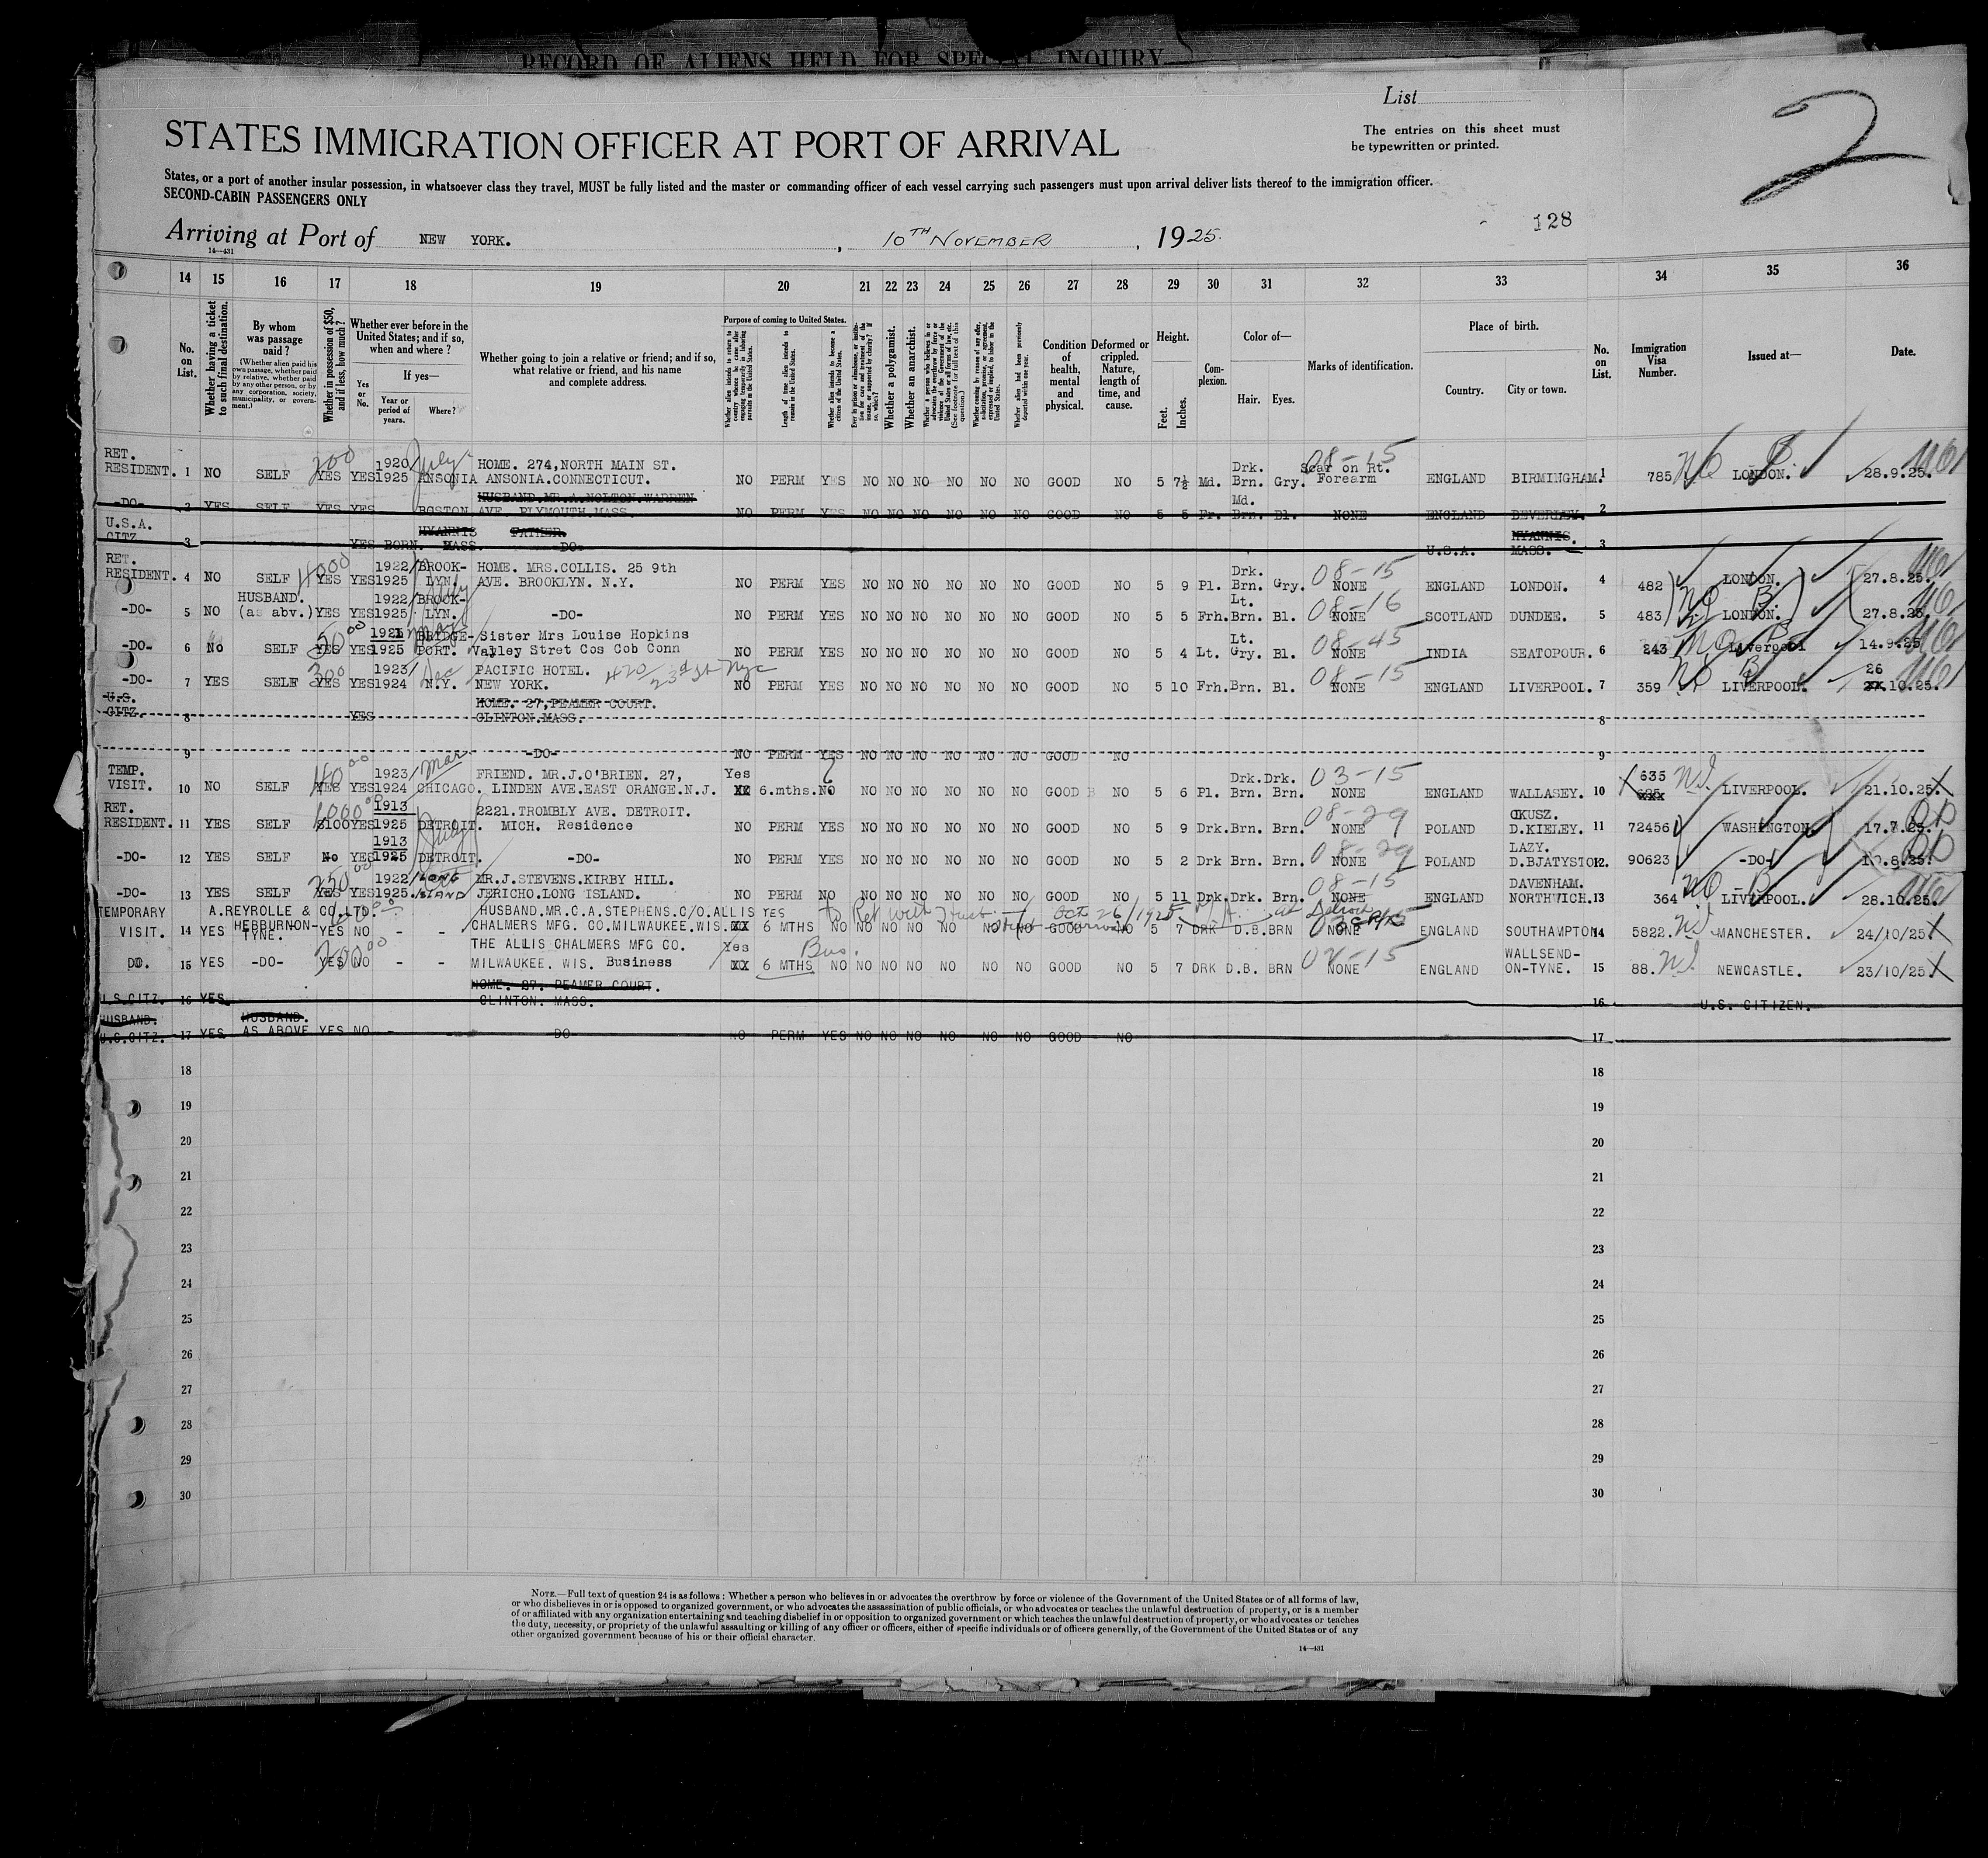 RECORD OF ALIENS HELD FOR SPECIAL INQUIRY
List
2
STATES IMMIGRATION OFFICER AT PORT OF ARRIVAL
The entries on this sheet must
be typewritten or printed.
States, or a port of another insular possession, in whatsoever class they travel, MUST be fully listed and the master or commanding officer of each vessel carrying such passengers must upon arrival deliver lists thereof to the immigration officer.
SECOND-CABIN PASSENGERS ONLY
128
Arriving at Port of NEW YORK. , 10TH NOVEMBER , 1925.
14—431
14 15 16 17 18 19 20 21 22 23 24 25 26 27 28 29 30 31 32 33 34 35 36
No. on List.
Whether having a ticket to such final destination.
By whom was passage paid?
(Whether alien paid his own passage, whether paid by relative, whether paid by any other person, or by any corporation, society, municipality, or government.)
Whether in possession of $50, and if less, how much?
Whether ever before in the United States; and if so, when and where?
Yes or No.
If yes—
Year or period of years.
Where?
Whether going to join a relative or friend; and if so, what relative or friend, and his name and complete address.
Purpose of coming to United States.
Whether alien intends to return to country whence he came after engaging temporarily in laboring pursuits in the United States.
Length of time alien intends to remain in the United States.
Whether alien intends to become a citizen of the United States.
Whether a polygamist.
Whether an anarchist.
Condition of health, mental and physical.
Deformed or crippled. Nature, length of time, and cause.
Height.
Feet. Inches.
Complexion.
Color of—
Hair. Eyes.
Marks of identification.
Place of birth.
Country. City or town.
No. on List.
Immigration Visa Number.
Issued at—
Date.
RET. 200 1920 July HOME. 274,NORTH MAIN ST. Drk. 08-15 Scar on Rt.
RESIDENT. 1 NO SELF YES YES 1925 ANSONIA ANSONIA.CONNECTICUT. NO PERM YES NO NO NO NO NO NO GOOD NO 5 7½ Md. Brn. Gry. Forearm ENGLAND BIRMINGHAM. 1 785 LONDON. 28.9.25.
HUSBAND.MR.A.NOLTON.WARDEN Md.
-DO- 2 YES SELF YES YES BOSTON AVE. PLYMOUTH.MASS. NO PERM YES NO NO NO NO NO NO GOOD NO 5 5 Fr. Brn. Bl. NONE ENGLAND BEVERLEY. 2
U.S.A. HYANNIS FATHER. HYANNIS.
CITZ. 3 YES BORN. MASS. -DO- U.S.A. MASS. 3
RET. 4000 1922 BROOK- HOME. MRS.COLLIS. 25 9th Drk. 08-15
RESIDENT. 4 NO SELF YES YES 1925 LYN. AVE. BROOKLYN. N.Y. NO PERM YES NO NO NO NO NO NO GOOD NO 5 9 Pl. Brn. Gry. NONE ENGLAND LONDON. 4 482 LONDON. 27.8.25.
HUSBAND. 1922 BROOK- Lt. 08-16
-DO- 5 NO (as abv.) YES YES 1925 LYN. -DO- NO PERM YES NO NO NO NO NO NO GOOD NO 5 5 Frh. Brn. Bl. NONE SCOTLAND DUNDEE. 5 483 LONDON. 27.8.25.
BRIDGE- Sister Mrs Louise Hopkins Lt. 08-45
-DO- 6 No SELF YES YES 1925 PORT. Valley Stret Cos Cob Conn NO PERM YES NO NO NO NO NO NO GOOD NO 5 4 Lt. Gry. Bl. NONE INDIA SEATOPOUR. 6 243 Liverpool 14.9.25
300 1923 Dec PACIFIC HOTEL. 420 23rd St Nyc 08-15 26
-DO- 7 YES SELF YES YES 1924 N.Y. NEW YORK. NO PERM YES NO NO NO NO NO NO GOOD NO 5 10 Frh. Brn. Bl. NONE ENGLAND LIVERPOOL. 7 359 LIVERPOOL. 10.25.
U.S. HOME. 27,PEAMER COURT.
CITZ. 8 YES CLINTON.MASS. 8
9 -DO- NO PERM YES NO NO NO NO NO NO GOOD NO 9
TEMP. 1923 Mar FRIEND. MR.J.O'BRIEN. 27, Yes Drk. Drk. 03-15 635
VISIT. 10 NO SELF YES YES 1924 CHICAGO. LINDEN AVE.EAST ORANGE.N.J. 6.mths. NO NO NO NO NO NO NO GOOD NO 5 6 Pl. Brn. Brn. NONE ENGLAND WALLASEY. 10 LIVERPOOL. 21.10.25.
RET. 1000 1913 2221.TROMBLY AVE. DETROIT. 08-29 KUSZ.
RESIDENT. 11 YES SELF $100 YES 1925 DETROIT. MICH. Residence NO PERM YES NO NO NO NO NO NO GOOD NO 5 9 Drk. Brn. Brn. NONE POLAND D.KIELEY. 11 72456 WASHINGTON. 17.7.25.
1913 08-29 LAZY.
-DO- 12 YES SELF No YES 1925 DETROIT. -DO- NO PERM YES NO NO NO NO NO NO GOOD NO 5 2 Drk Brn. Brn. NONE POLAND D.BJATYSTOK. 12 90623 -DO- 8.25.
250 1922 LONG MR.J.STEVENS.KIRBY HILL. 08-15 DAVENHAM.
-DO- 13 YES SELF YES YES 1925. ISLAND JERICHO.LONG ISLAND. NO PERM NO NO NO NO NO NO NO GOOD NO 5 11 Drk. Drk. Brn. NONE ENGLAND NORTHWICH. 13 364 LIVERPOOL. 28.10.25.
TEMPORARY A.REYROLLE & CO.LTD. HUSBAND.MR.C.A.STEPHENS.C/O.ALLIS YES to Ret with Oct 26/1925 Detroit
VISIT. 14 YES HEBBURN-ON-TYNE. YES NO - - CHALMERS MFG. CO.MILWAUKEE.WIS. 6 MTHS NO NO NO NO NO NO NO GOOD NO 5 7 DRK D.B. BRN NONE ENGLAND SOUTHAMPTON 14 5822. MANCHESTER. 24/10/25
200 THE ALLIS CHALMERS MFG CO. Yes Bus. WALLSEND-
DO. 15 YES -DO- YES NO - - MILWAUKEE. WIS. Business 6 MTHS NO NO NO NO NO NO NO GOOD NO 5 7 DRK D.B. BRN NONE ENGLAND ON-TYNE. 15 88. NEWCASTLE. 23/10/25
HOME. 27. PEAMER COURT.
U.S.CITZ. 16 YES. CLINTON. MASS. 16 U.S. CITIZEN.
HUSBAND. HUSBAND.
U.S.CITZ. 17 YES AS ABOVE YES NO - DO NO PERM YES NO NO NO NO NO NO GOOD NO 17
18 18
19 19
20 20
21 21
22 22
23 23
24 24
25 25
26 26
27 27
28 28
29 29
30 30
NOTE.—Full text of question 24 is as follows: Whether a person who believes in or advocates the overthrow by force or violence of the Government of the United States or of all forms of law,
or who disbelieves in or is opposed to organized government, or who advocates the assassination of public officials, or who advocates or teaches the unlawful destruction of property, or is a member
of or affiliated with any organization entertaining and teaching disbelief in or opposition to organized government or which teaches the unlawful destruction of property, or who advocates or teaches
the duty, necessity, or propriety of the unlawful assaulting or killing of any officer or officers, either of specific individuals or of officers generally, of the Government of the United States or of any
other organized government because of his or their official character.
14—431